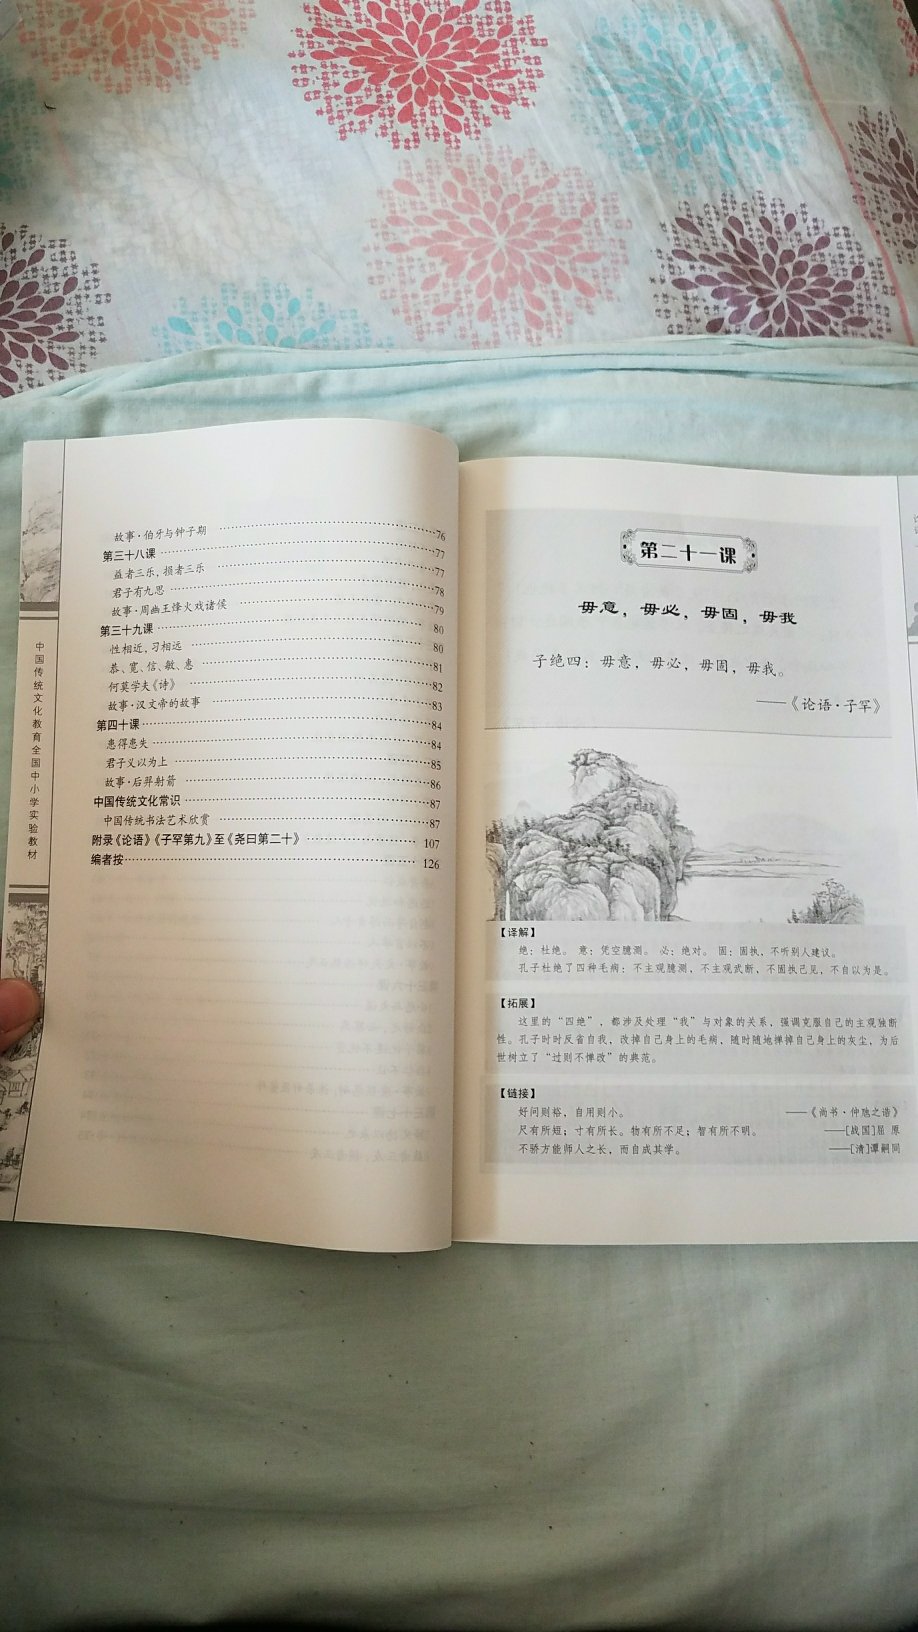 中国传统文化教育全国中小学实验教材
故事·伯牙与钟子期 ………… 76
第三十八课 ………… 77
益者三乐，损者三乐 ………… 77
君子有九思 ………… 78
故事·周幽王烽火戏诸侯 ………… 79
第三十九课 ………… 80
性相近，习相远 ………… 80
恭、宽、信、敏、惠 ………… 81
何莫学夫《诗》 ………… 82
故事·汉文帝的故事 ………… 83
第四十课 ………… 84
患得患失 ………… 84
君子义以为上 ………… 85
故事·后羿射箭 ………… 86
中国传统文化常识 ………… 87
中国传统书法艺术欣赏 ………… 87
附录《论语》《子罕第九》至《尧曰第二十》 ………… 107
编者按 ………… 126
第二十一课
毋意，毋必，毋固，毋我
子绝四：毋意，毋必，毋固，毋我。
——《论语·子罕》
【译解】
绝：杜绝。 意：凭空臆测。 必：绝对。 固：固执，不听别人建议。
孔子杜绝了四种毛病：不主观臆测，不主观武断，不固执己见，不自以为是。
【拓展】
这里的“四绝”，都涉及处理“我”与对象的关系，强调克服自己的主观独断
性。孔子时时反省自我，改掉自己身上的毛病，随时随地掸掉自己身上的灰尘，为后
世树立了“过则不惮改”的典范。
【链接】
好问则裕，自用则小。 ——《尚书·仲虺之诰》
尺有所短；寸有所长。物有所不足；智有所不明。 ——[战国]屈 原
不骄方能师人之长，而自成其学。 ——[清]谭嗣同